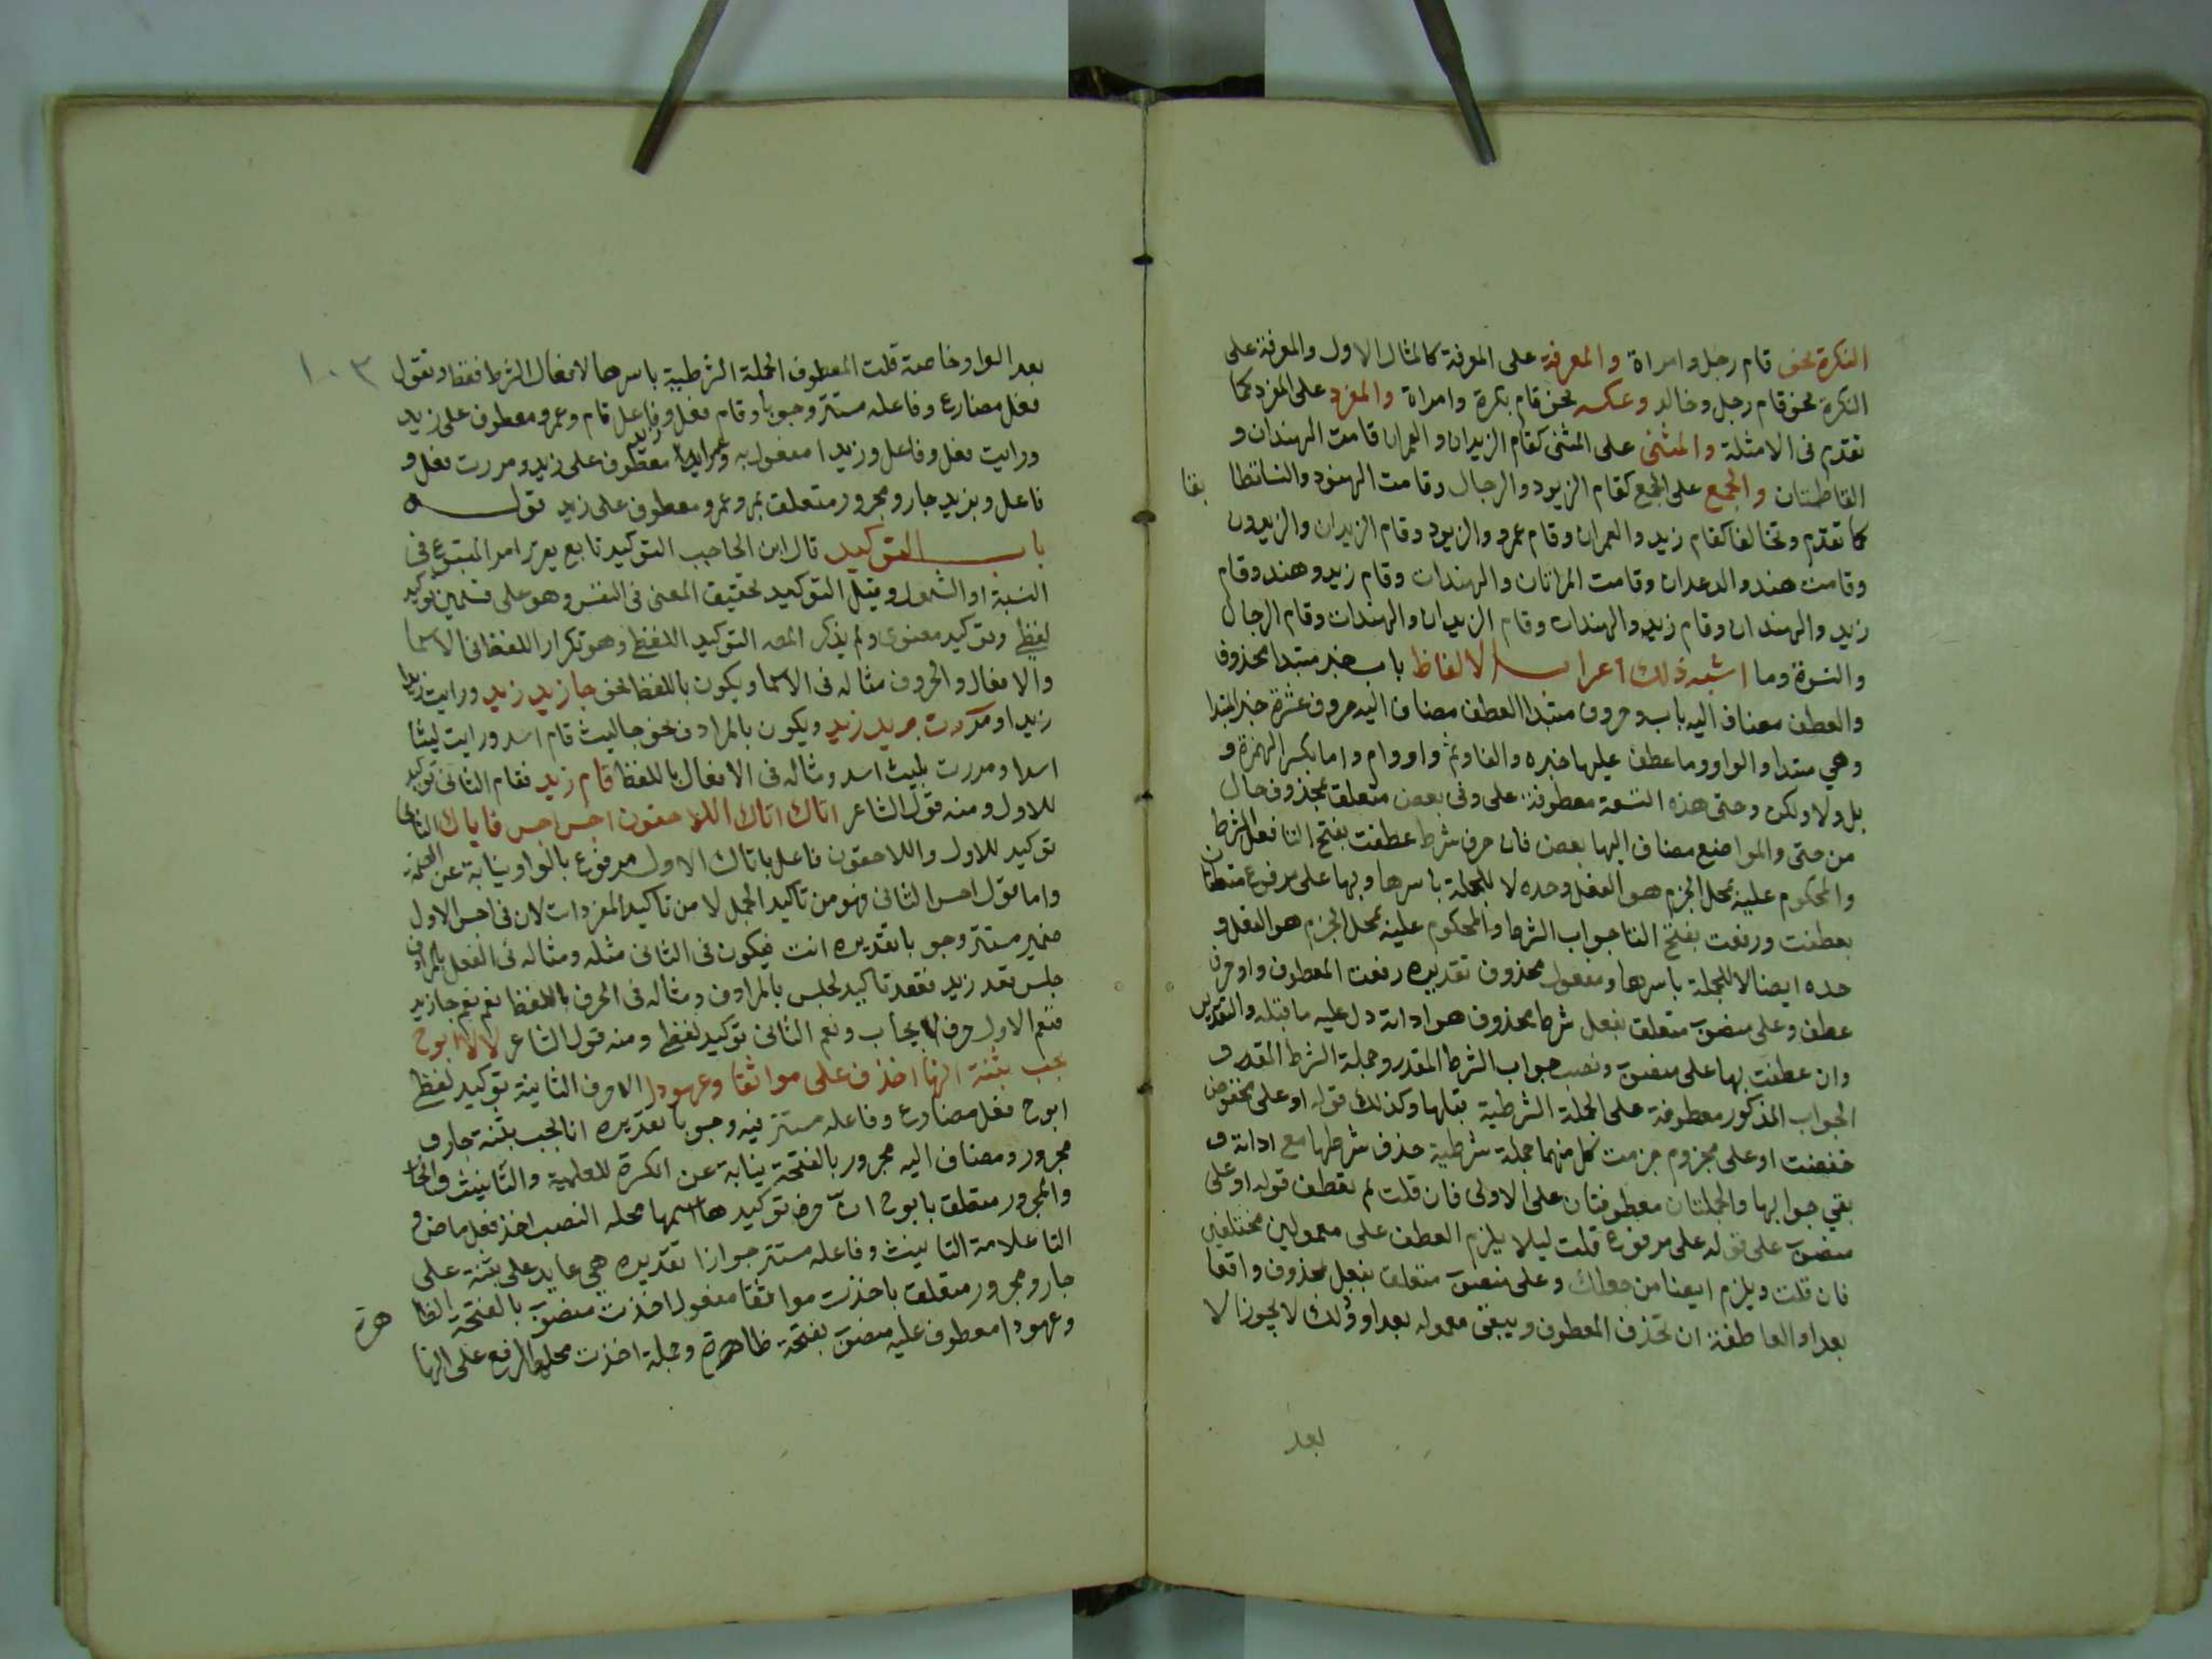 النكرة نحو قام رجل وامراة والمعرفة على المعرفة كالمثال الاول والمعرفة على
النكرة نحو قام رجل وخالد وعكسه نحو قام بكرة وامراة والمفرد على المفرد كما
تقدم فى الامثلة والمثنى على المثنى كقام الزيدان والعمران قامت الهندان و
الفاطمتان والجمع على الجمع كقام الزيود والرجال وقامت الهنود والنساء
كما تقدم وتخالفا كقام زيد والعمران وقام عمرو والزيود وقام الزيدان والزيدون
وقامت هند والدعدان وقامت المراتان والهندات وقام زيد وهند وقام
زيد والهندان وقام زيد والهندات وقام الزيدان والهندات وقام الرجال
والنسوة وما اشبه ذلك اعراب الالفاظ باب خبر مبتدا محذوف
والعطف مضاف اليه باب وحروف مبتدا العطف مضاف اليه حروف عشرة خبر المبتدا
وهي مبتدا والواو وما عطف عليها خبره والفا وثم واو وام واما بكسر الهمزة و
بل ولا ولكن وحتى هذه التسعة معطوفة على وفى بعض متعلق بمحذوف حال
من حتى والمواضع مضاف اليها بعض فان حرف شرط عطفت بفتح التا فعل الشرط
والمحكوم عليه بمحل الجزم هو الفعل وحده لا للجملة باسرها وبها على مرفوع متعلقان
بعطفت ورفعت بفتح التا جواب الشرط والمحكوم عليه بمحل الجزم هو الفعل و
حده ايضا لا للجملة باسرها ومفعول محذوف تقديره رفعت المعطوف واو حرف
عطف وعلى منصوب متعلق بفعل شرط محذوف هو اداته دل عليه ما قبله والتقدير
وان عطفت بها على منصوب ونصب جواب الشرط المقدر وجملة الشرط المقدر و
الجواب المذكور معطوفة على الجملة الشرطية قبلها وكذلك قوله او على مخفوض
خفضت او على مجزوم جزمت كل منهما جملة شرطية حذف شرطها مع اداته و
بقي جوابها والجملتان معطوفتان على الاولى فان قلت لم تعطف قوله او على
منصوب على قوله على مرفوع قلت ليلا يلزم العطف على معمولين مختلفين
فان قلت ويلزم ايضا من جعلك وعلى منصوب متعلق بفعل محذوف واقعا
بعد او العاطفة ان تحذف المعطوف ويبقى معموله بعد او وذلك لا يجوز الا
بعد
بعد الواو خاصة قلت المعطوف الجملة الشرطية باسرها لا فعال الشرط فقط وتقول
فعل مضارع وفاعله مستتر وجوبا وقام فعل وفاعل قام وعمرو معطوف على زيد
ورايت فعل وفاعل وزيدا مفعول به معطوف على زيد ومررت فعل و
فاعل وبزيد جار ومجرور متعلق بمر وعمرو معطوف على زيد قوله
باب التوكيد قال ابن الحاجب التوكيد تابع يقرر امر المتبوع فى
النسبة او الشمول وقيل التوكيد تحقيق المعنى فى النفس وهو على قسمين توكيد
لفظى وتوكيد معنوى ولم يذكر المص التوكيد اللفظى وهو تكرار اللفظ فى الاسما
والافعال والحروف مثاله فى الاسما ويكون باللفظ نحو جا زيد زيد ورايت زيدا
زيدا ومررت بزيد زيد ويكون بالمرادف نحو جا ليث قام اسد ورايت ليثا
اسدا ومررت بليث اسد ومثاله فى الافعال باللفظ قام قام زيد فقام الثانى توكيد
للاول ومنه قول الشاعر اتاك اتاك اللاحقون احبس احبس فاتاك الثانى
توكيد للاول واللاحقون فاعل باتاك الاول مرفوع بالواو نيابة عن الضمة
واما قول احبس الثانى فهو من تاكيد الجمل لا من تاكيد المفردات لان فى احبس الاول
ضمير مستتر وجوبا تقديره انت فيكون فى الثانى مثله ومثاله فى الفعل بالمرادف
جلس قعد زيد فقعد تاكيد لجلس بالمرادف ومثاله فى الحرف باللفظ نعم نعم جا زيد
فنعم الاول حرف ايجاب ونعم الثانى توكيد لفظى ومنه قول الشاعر لا لا ابوح
بحب بثنة انها اخذت على مواثقا وعهودا الا حرف الثانية توكيد لفظى
ابوح فعل مضارع وفاعله مستتر فيه وجوبا تقديره انا بحب بثنة جار و
مجرور ومضاف اليه مجرور بالفتحة نيابة عن الكسرة للعلمية والتانيث والجار
والمجرور متعلق بابوح ان حرف توكيد ها اسمها محله النصب اخذ فعل ماض و
التا علامة التانيث وفاعله مستتر جوازا تقديره هي عايد على بثنة على
جار ومجرور متعلق باخذت مواثقا مفعول اخذت منصوب بالفتحة الظا هرة
وعهودا معطوف عليه منصوب بفتحة ظاهرة وجملة اخذت محلها الرفع على انها
١٠٣